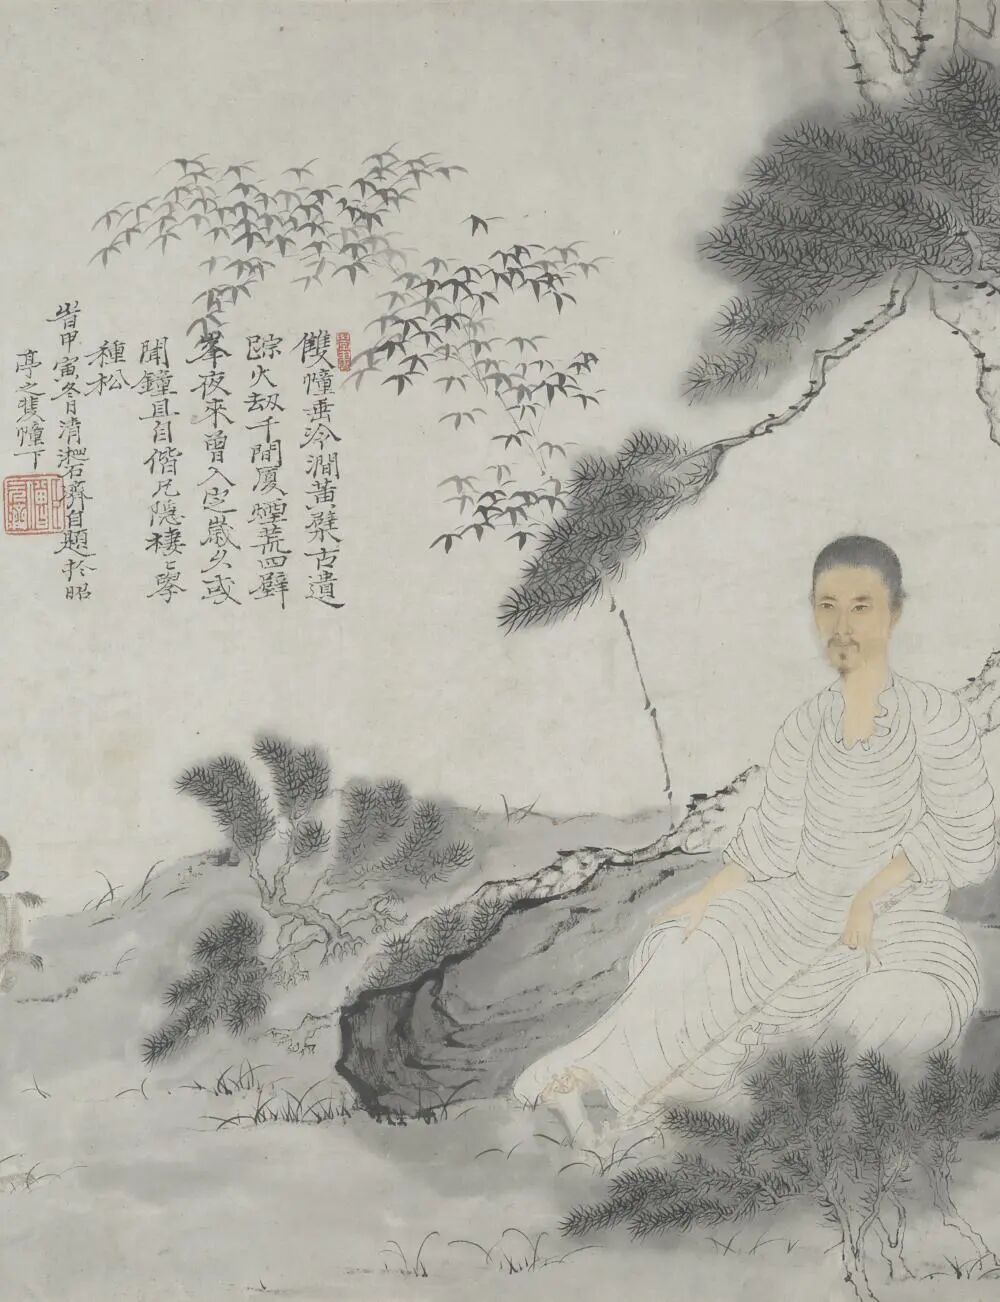 雙幢垂冷澗黃檗古遺
踪火劫千間厦煙荒四壁
峯夜來曾入定歲久或
聞鐘且自偕兄隱棲〻學
種松
旹甲寅冬月清湘石濟自題於昭
亭之雙幢下